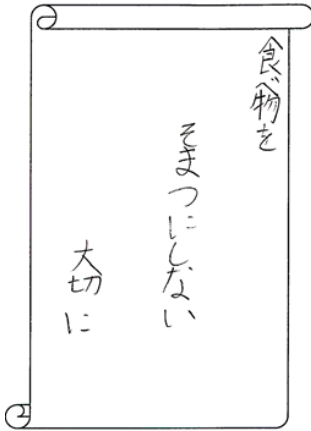 食べ物を
そまつにしない
大切に